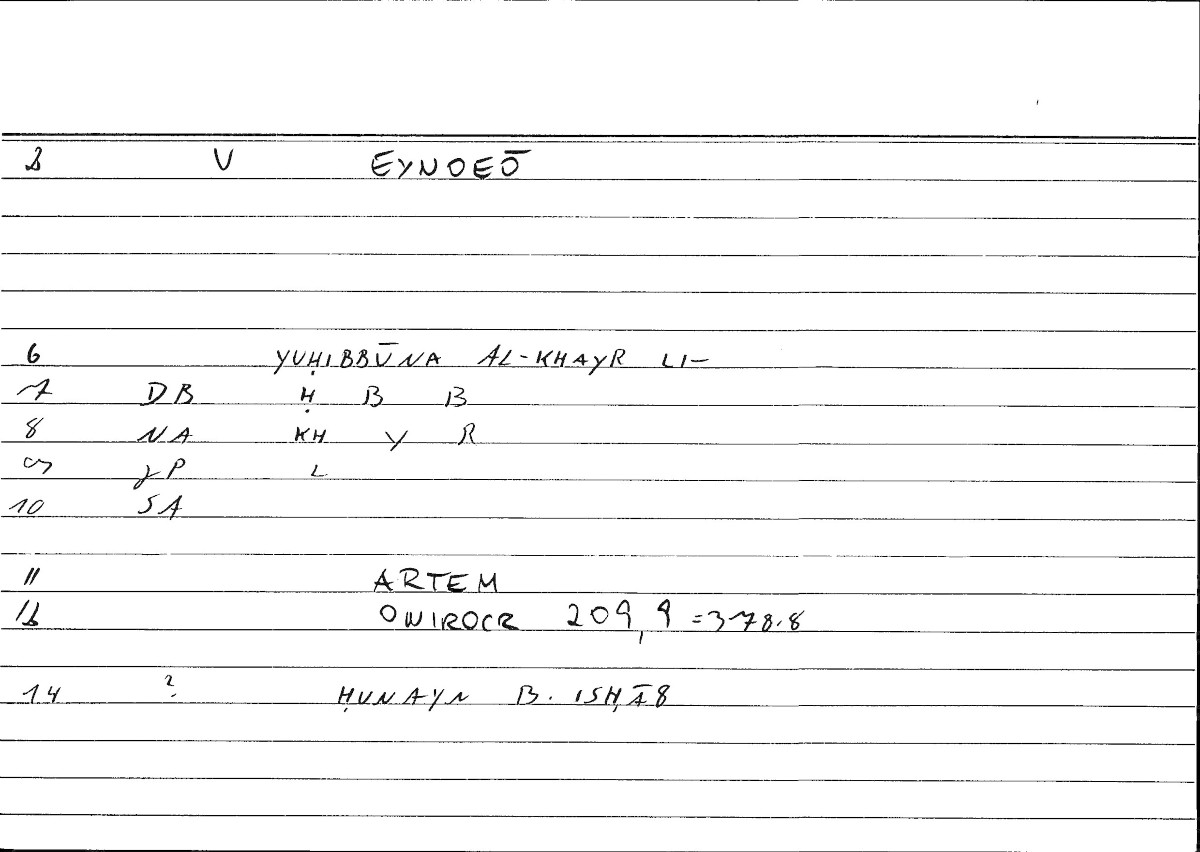 2 V EYNOEŌ
6 YUḤIBBŪNA AL-KHAYR LI-
7 DB Ḥ B B
8 NA KH Y R
9 γP L
10 SA
11 ARTEM
12 ONIROCR 209,9 = 378.8
14 ? ḤUNAYN B. ISḤĀ8